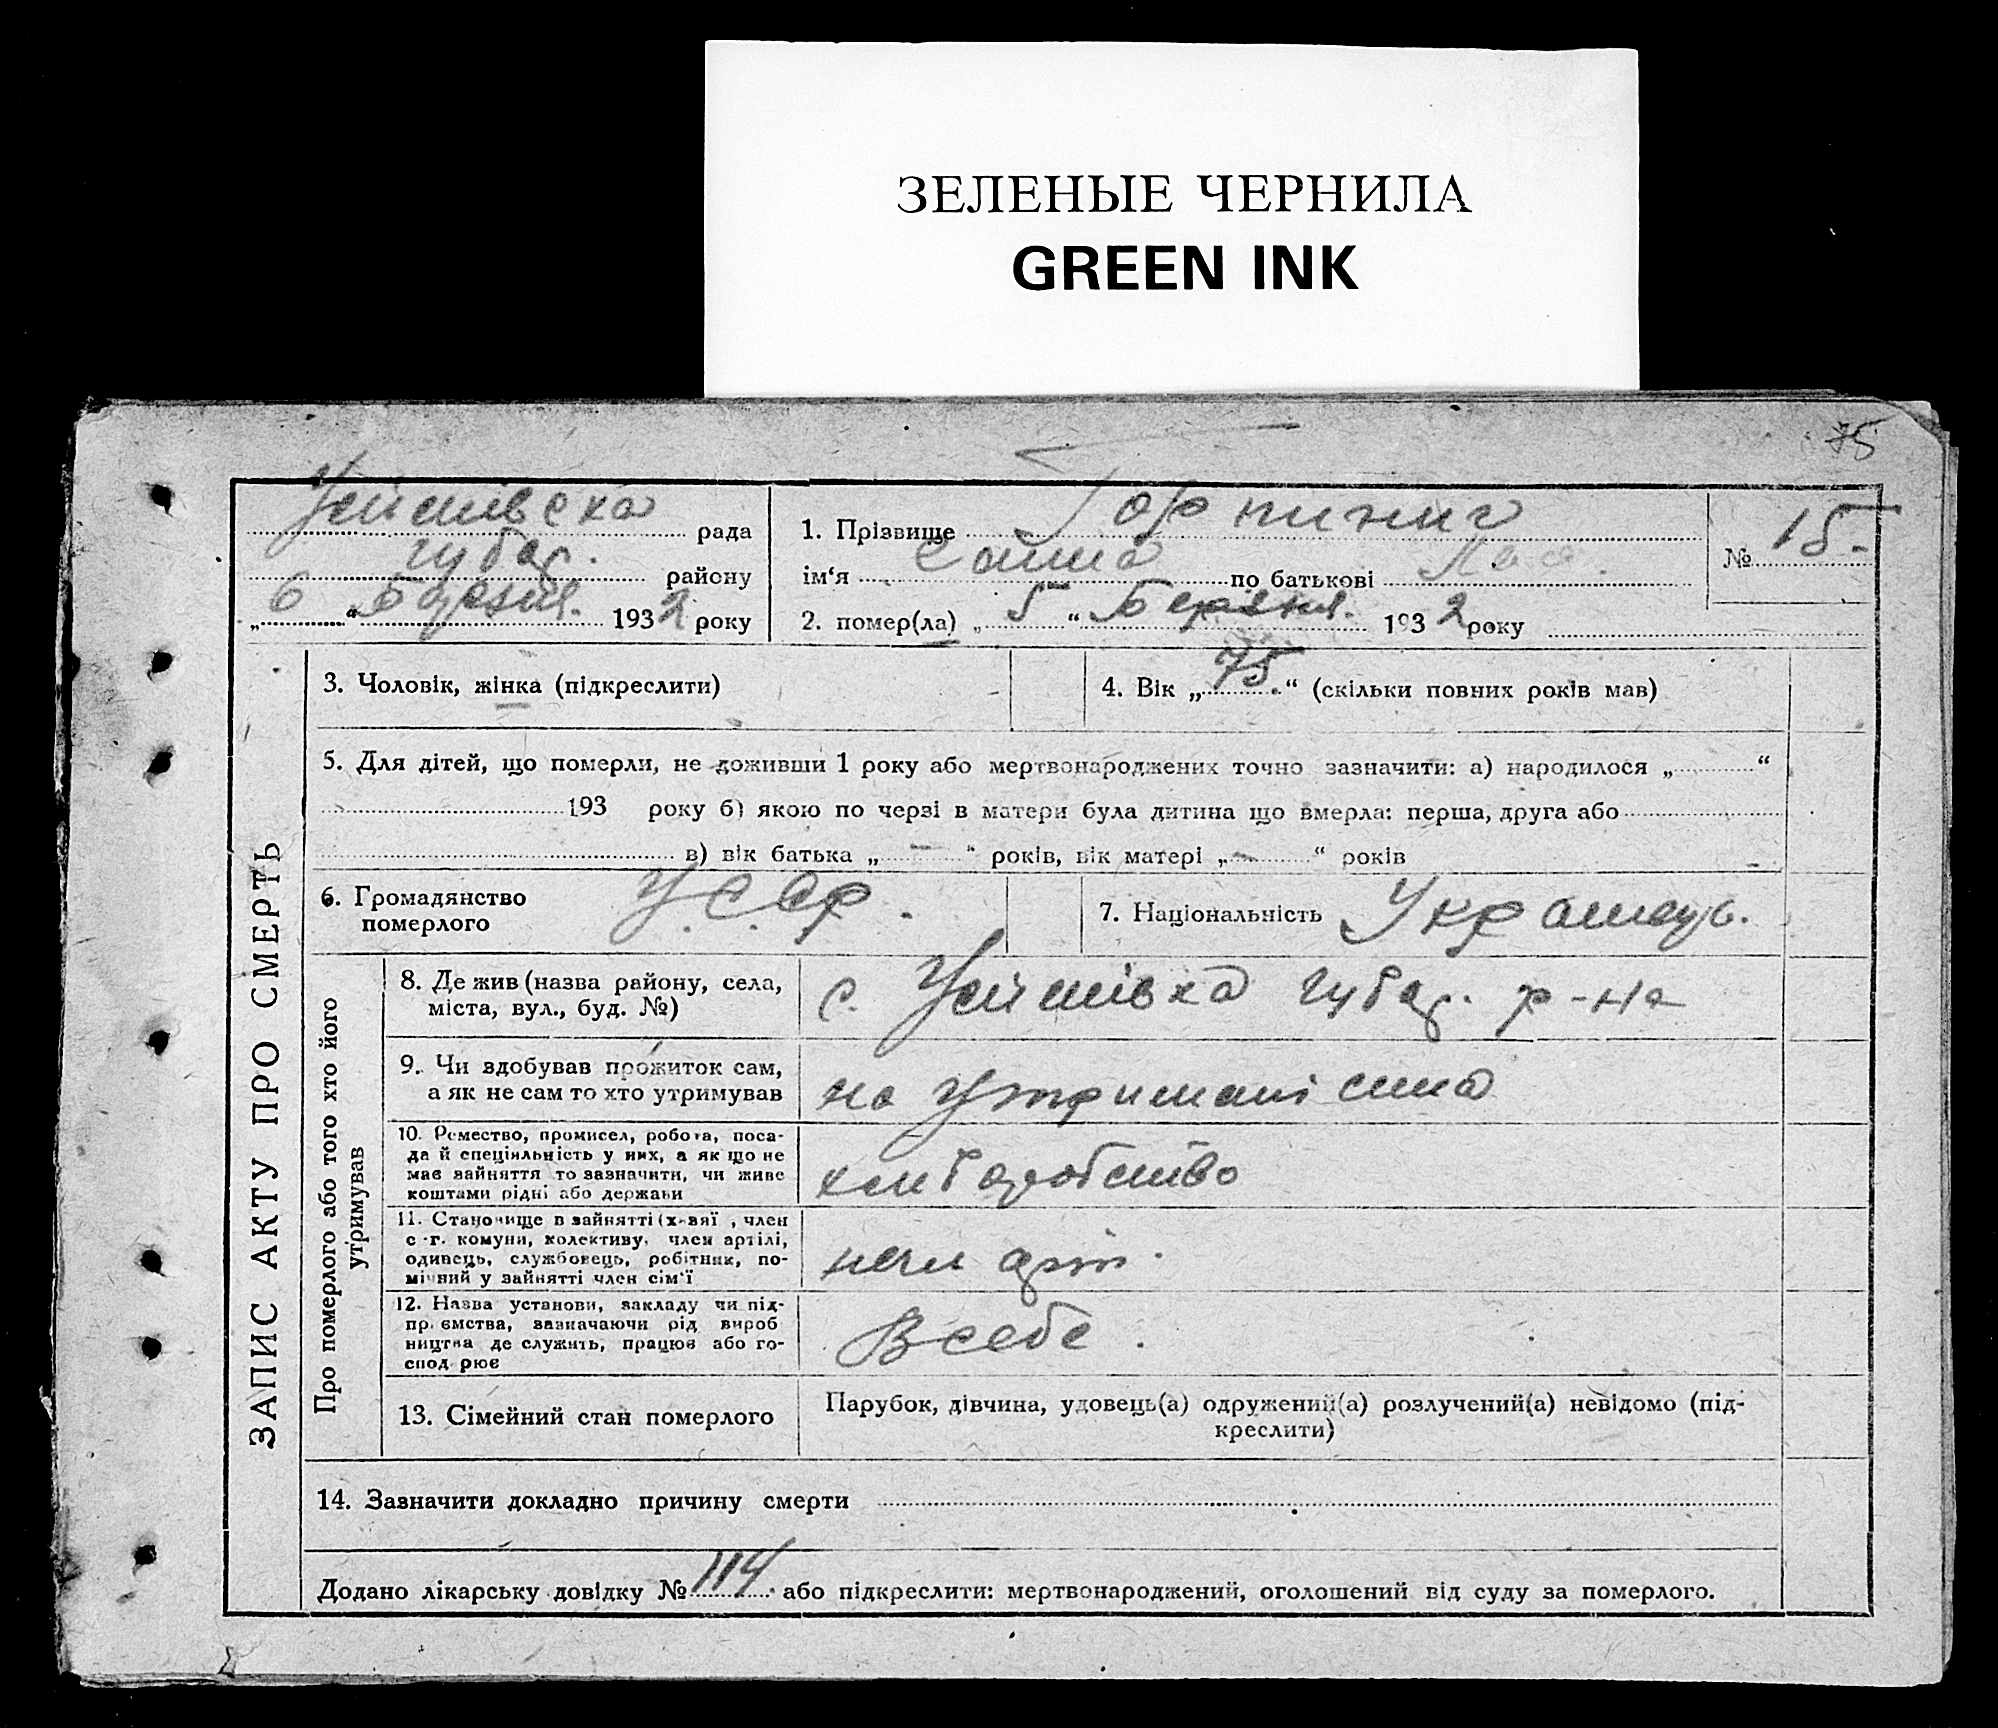 ЗЕЛЕНЫЕ ЧЕРНИЛА
GREEN INK
75
Устивська рада
губар. району
„6“ Березня. 1932 року
1. Прізвище
ім‘я по батькові
№ 15.
2. помер(ла) „5“ Березня. 1932 року
3. Чоловік, жінка (підкреслити)
4. Вік „75.“ (скільки повних років мав)
5. Для дітей, що померли, не доживши 1 року або мертвонароджених точно зазначити: а) народилося „ “
193 року б) якою по черзі в матери була дитина що вмерла: перша, друга або
в) вік батька „ — “ років, вік матері „ — “ років
6. Громадянство
померлого
У.С.С.Р.
7. Національність
ЗАПИС АКТУ ПРО СМЕРТЬ
Про померлого або того хто його
утримував
8. Де жив (назва району, села,
міста, вул., буд. №)
с. губар. р-на
9. Чи здобував прожиток сам,
а як не сам то хто утримував
на утримані сина
10. Ремество, промисел, робота, поса-
да й спеціяльність у них, а як що не
має зайняття то зазначити, чи живе
коштами рідні або держави
хліборобство
11. Становище в зайнятті (х-вяї , член
с -г. комуни, колективу, член артілі,
одинець, службовець, робітник, по-
мічний у зайнятті член сім‘ї
член арт.
12. Назва установи, закладу чи під-
пр.ємства, зазначаючи рід вироб
ництва де служить, працює або го-
спод рює
В себе.
13. Сімейний стан померлого
Парубок, дівчина, удовець(а) одружений(а) розлучений(а) невідомо (під-
креслити)
14. Зазначити докладно причину смерти
Додано лікарську довідку № 114. або підкреслити: мертвонароджений, оголошений від суду за померлого.